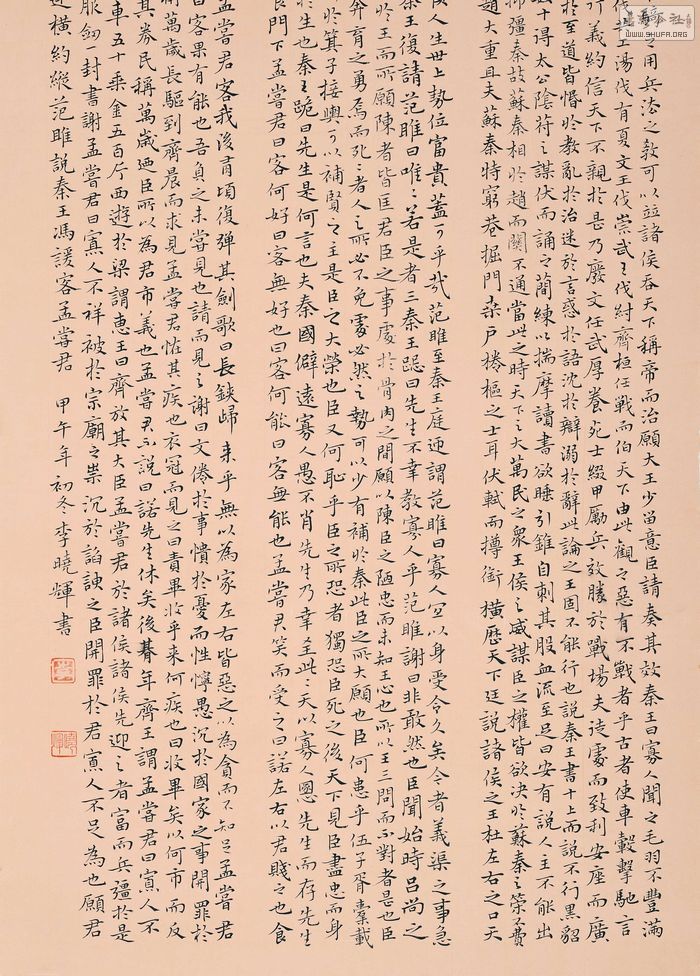 之用兵法之教可以竝諸侯吞天下稱帝而治願大王少留意臣請奏其效秦王曰寡人聞之毛羽不豐滿
工湯伐有夏文王伐崇武王伐紂齊桓任戰而伯天下由此觀之惡有不戰者乎古者使車轂擊馳言
行義約信天下不親於是乃廢文任武厚養死士綴甲厲兵效勝於戰場夫徒處而致利安座而廣
於至道皆惛於教亂於治迷於言惑於語沈於辯溺於辭此論之王固不能行也說秦王書十上而說不行黑貂
十得太公陰符之謀伏而誦之簡練以揣摩讀書欲睡引錐自刺其股血流至足曰安有說人主不能出
抑彊秦故蘇秦相於趙而關不通當此之時天下之大萬民之眾王侯之威謀臣之權皆欲決於蘇秦之策費
趙大重且夫蘇秦特窮巷掘門桑戶棬樞之士耳伏軾而撙銜橫歷天下廷說諸侯之王杜左右之口天
人生世上勢位富貴蓋可乎哉 范雎至秦王庭迎謂范雎曰寡人宜以身受令久矣今者義渠之事急
王復請范雎曰唯〻若是者三秦王跽曰先生不幸教寡人乎范雎謝曰非敢然也臣聞始時呂尚之
王而所願陳者皆匡君臣之事處於骨肉之間願以陳臣之陋忠而未知王心也所以王三問而不對者是也臣
奔育之勇焉而死〻者人之所必不免處必然之勢可以少有補於秦此臣之所大願也臣何患乎伍子胥橐載
於箕子接輿可以補賢之主是臣之大榮也臣又何恥乎臣之所恐者獨恐臣死之後天下見臣盡忠而身
於先生也秦王跪曰先生是何言也夫秦國僻遠寡人愚不肖先生乃幸至此〻天以寡人慁先生而存先生
門下孟嘗君曰客何好曰客無好也曰客何能曰客無能也孟嘗君笑而受之曰諾左右以君賤之也食
孟嘗君客我後有頃復彈其劍歌曰長鋏歸來乎無以為家左右皆惡之以為貪而不知足孟嘗君
曰客果有能也吾負之未嘗見也請而見之謝曰文倦於事憒於憂而性懧愚沉於國家之事開罪於
萬歲長驅到齊晨而求見孟嘗君怪其疾也衣冠而見之曰責畢收乎來何疾也曰收畢矣以何市而反
其券民稱萬歲迺臣所以為君市義也孟嘗君不說曰諾先生休矣後朞年齊王謂孟嘗君曰寡人不
車五十乘金五百斤西遊於梁謂惠王曰齊放其大臣孟嘗君於諸侯諸侯先迎之者富而兵彊於是
服劍一封書謝孟嘗君曰寡人不祥被於宗廟之祟沉於諂諛之臣開罪於君寡人不足為也願君
連橫約縱范雎說秦王馮諼客孟嘗君 甲午年初冬李曉輝書
WWW.SHUFA.ORG